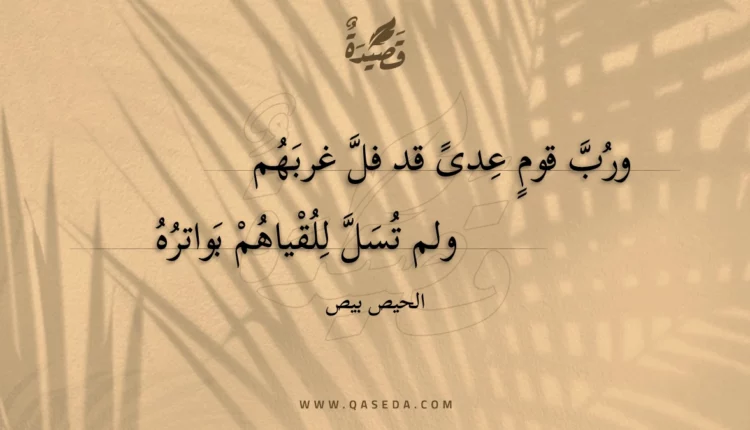 قَصِيْدَةٌ
ورُبَّ قومٍ عِدىً قد فلَّ غربَهُم
ولم تُسَلَّ لِلُقْياهُمْ بَواترُهُ
الحيص بيص
WWW.QASEDA.COM